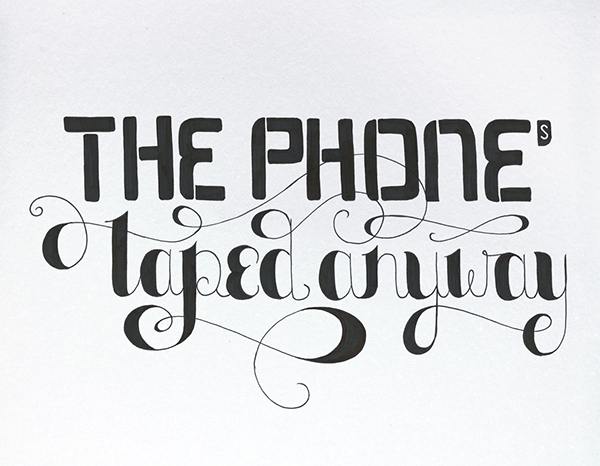 THE PHONE'S
taped anyway